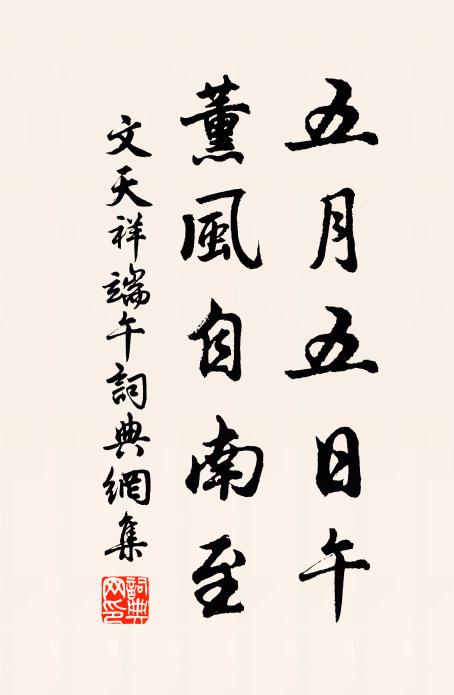 五月五日午
薰風自南至
文天祥端午詞典網集
詞典網印